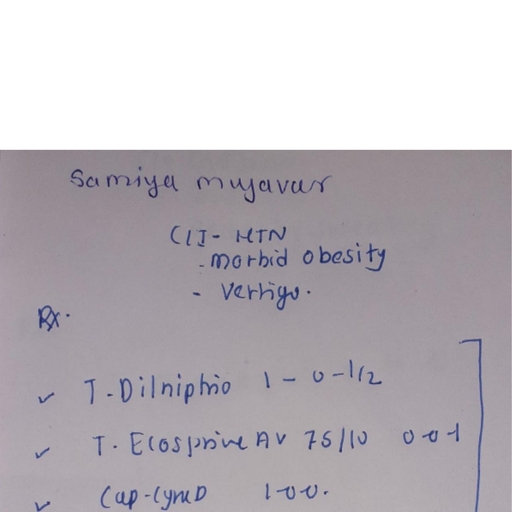 Samiya mujavar
C/I- HTN
- morbid obesity
- Vertigo.
Rx.
✓ T. Dilniphio 1 - 0 - 1/2
✓ T. Ecosprine AV 75/10 0-0-1
✓ Cap - 1-0-0.